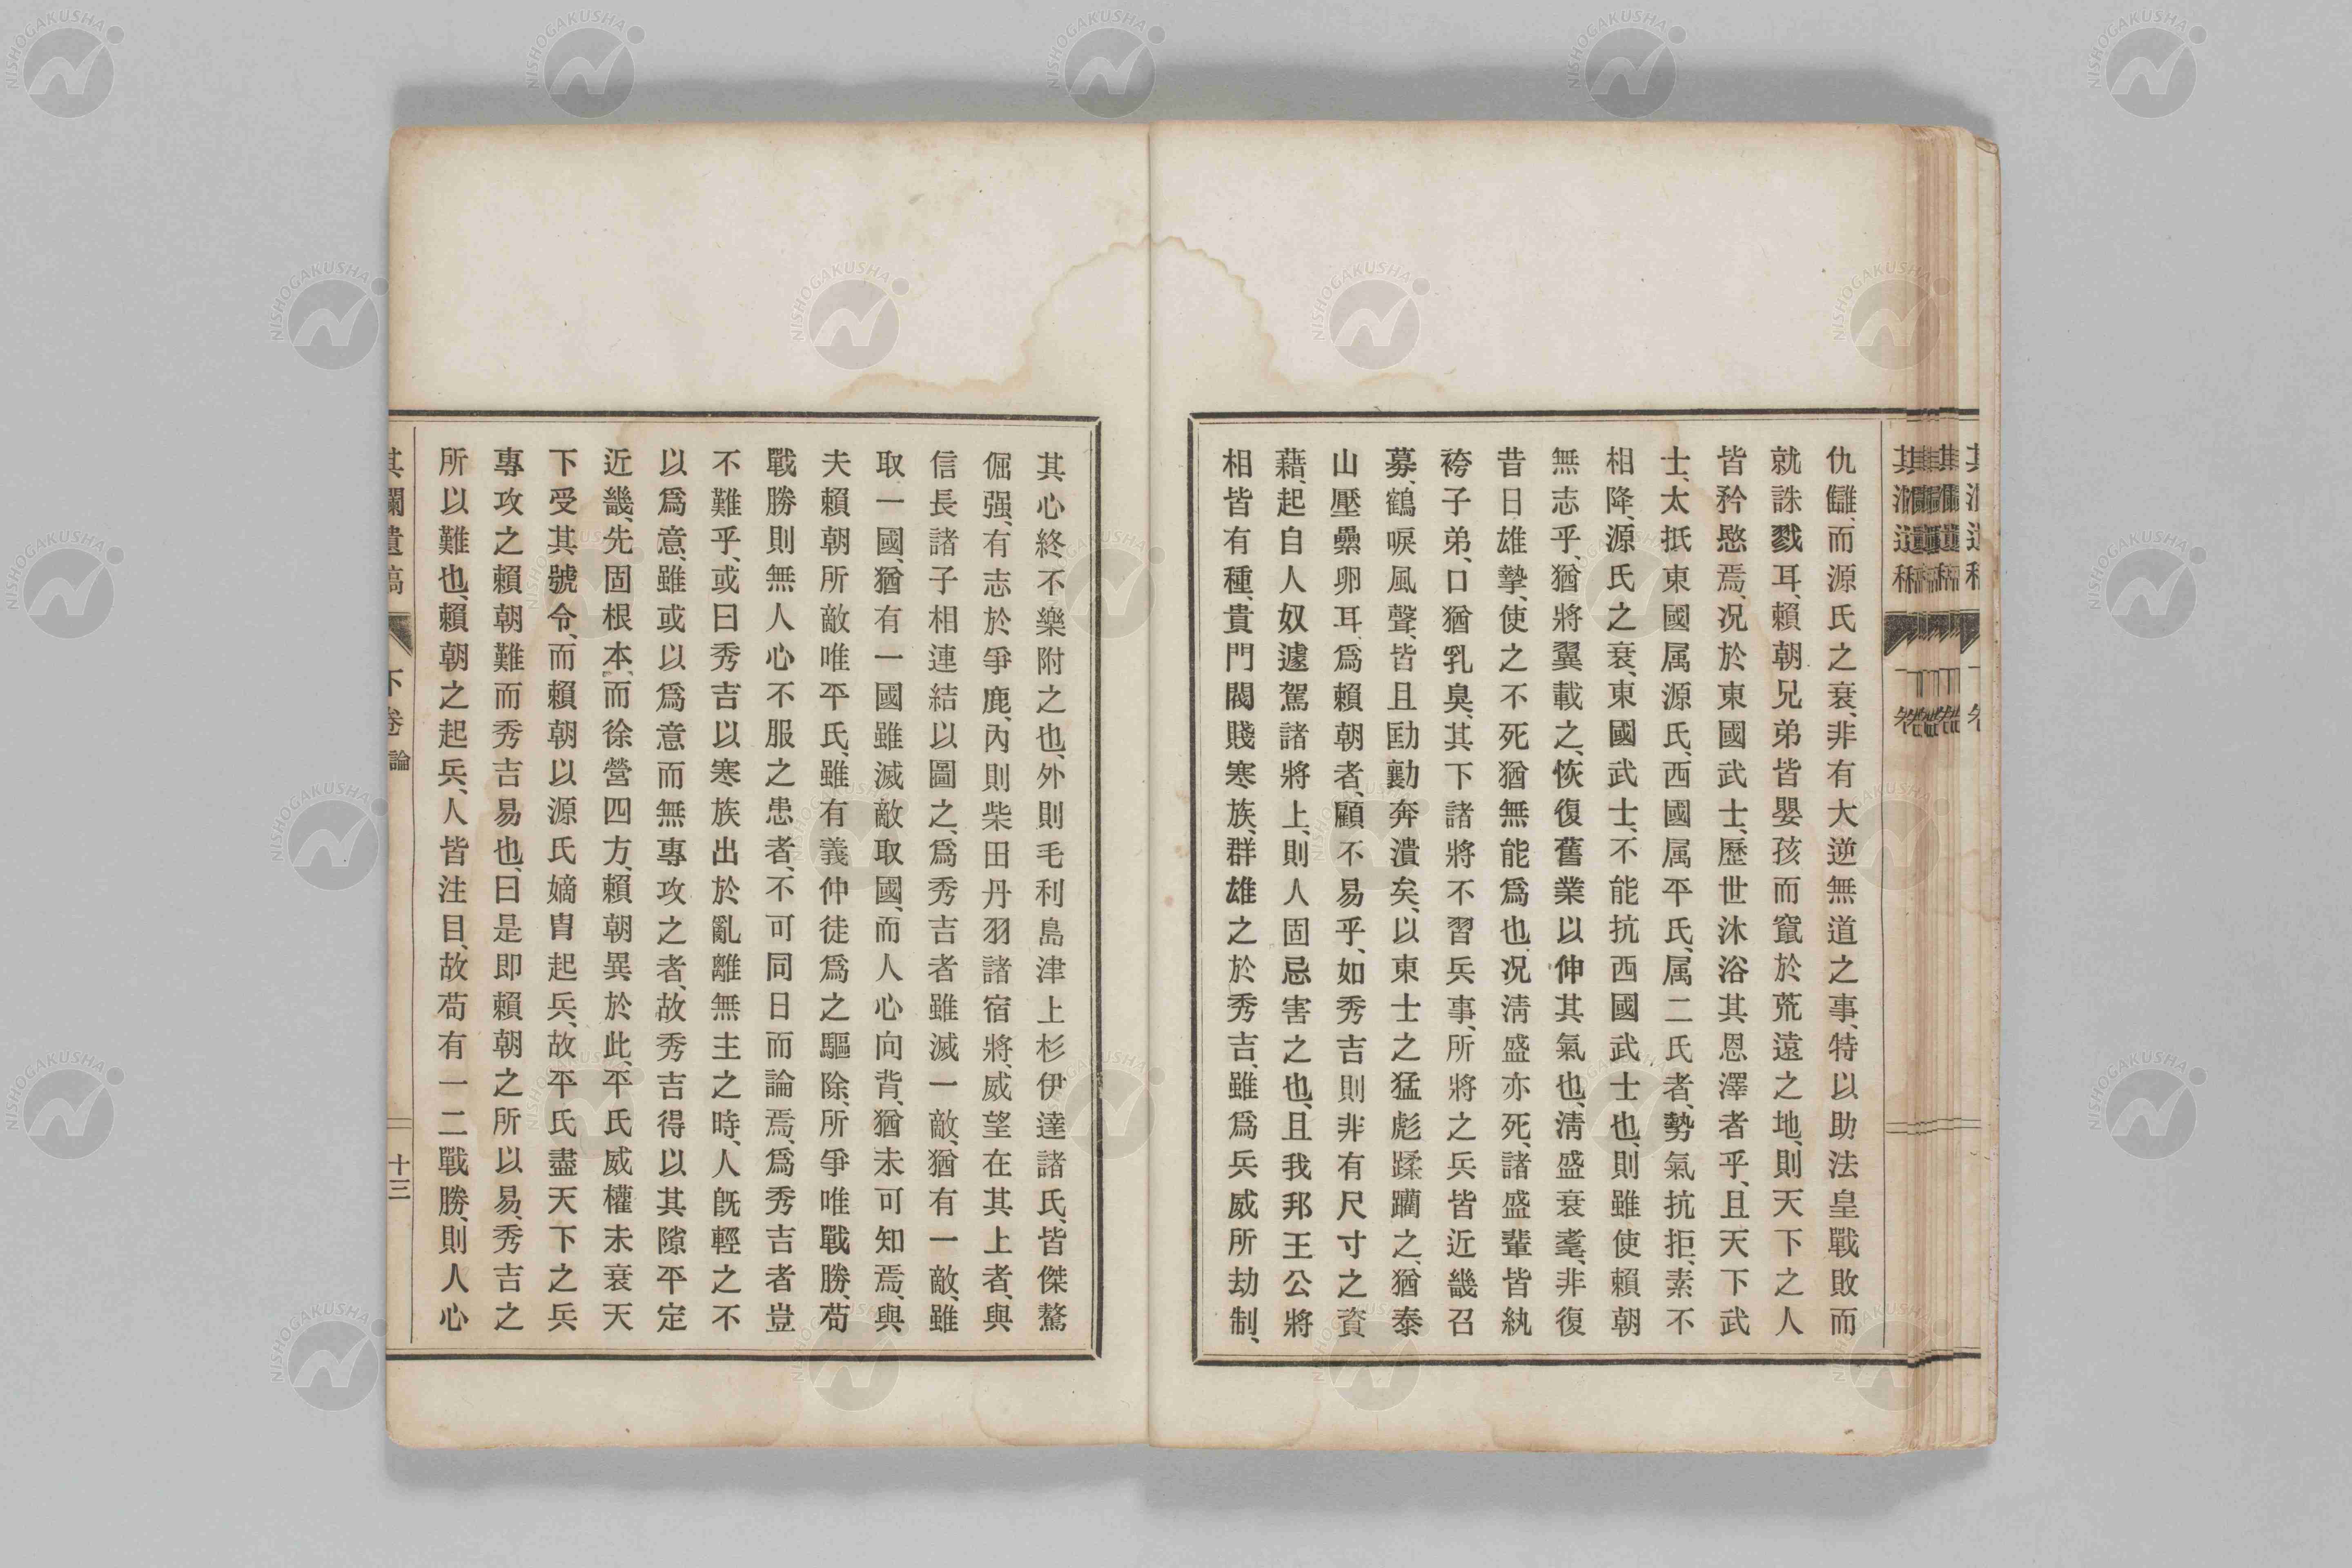 仇讎、而源氏之衰、非有大逆無道之事、特以助法皇戰敗而
就誅戮耳、賴朝兄弟皆嬰孩而竄於荒遠之地、則天下之人
皆矜愍焉、况於東國武士、歷世沐浴其恩澤者乎、且天下武
士、太抵東國属源氏、西國属平氏、属二氏者、勢氣抗拒、素不
相降、源氏之衰、東國武士、不能抗西國武士也、則雖使賴朝
無志乎、猶將翼載之、恢復舊業以伸其氣也、淸盛衰耄、非復
昔日雄摯、使之不死猶無能爲也、况淸盛亦死、諸盛輩皆紈
袴子弟、口猶乳臭、其下諸將不習兵事、所將之兵皆近畿召
募、鶴唳風聲、皆且劻勷奔潰矣、以東士之猛彪蹂躪之、猶泰
山壓纍卵耳、爲賴朝者、顧不易乎、如秀吉則非有尺寸之資
藉、起自人奴遽駕諸將上、則人固忌害之也、且我邦王公將
相皆有種、貴門閥賤寒族、群雄之於秀吉、雖爲兵威所劫制、
其心終、不樂附之也、外則毛利島津上杉伊達諸氏、皆傑驁
倔强、有志於爭鹿、內則柴田丹羽諸宿將、威望在其上者、與
信長諸子相連結以圖之、爲秀吉者雖滅一敵、猶有一敵、雖
取一國、猶有一國雖滅敵取國、而人心向背、猶未可知焉、與
夫賴朝所敵唯平氏、雖有義仲徒爲之驅除、所爭唯戰勝、苟
戰勝則無人心不服之患者、不可同日而論焉、爲秀吉者豈
不難乎、或曰秀吉以寒族出於亂離無主之時、人旣輕之不
以爲意、雖或以爲意而無專攻之者、故秀吉得以其隙平定
近畿、先固根本、而徐營四方、賴朝異於此、平氏威權未衰天
下受其號令、而賴朝以源氏嫡冑起兵、故平氏盡天下之兵
專攻之賴朝難而秀吉易也、曰是卽賴朝之所以易、秀吉之
所以難也、賴朝之起兵、人皆注目、故苟有一二戰勝、則人心
其瀾遺稿 下卷 論 十三